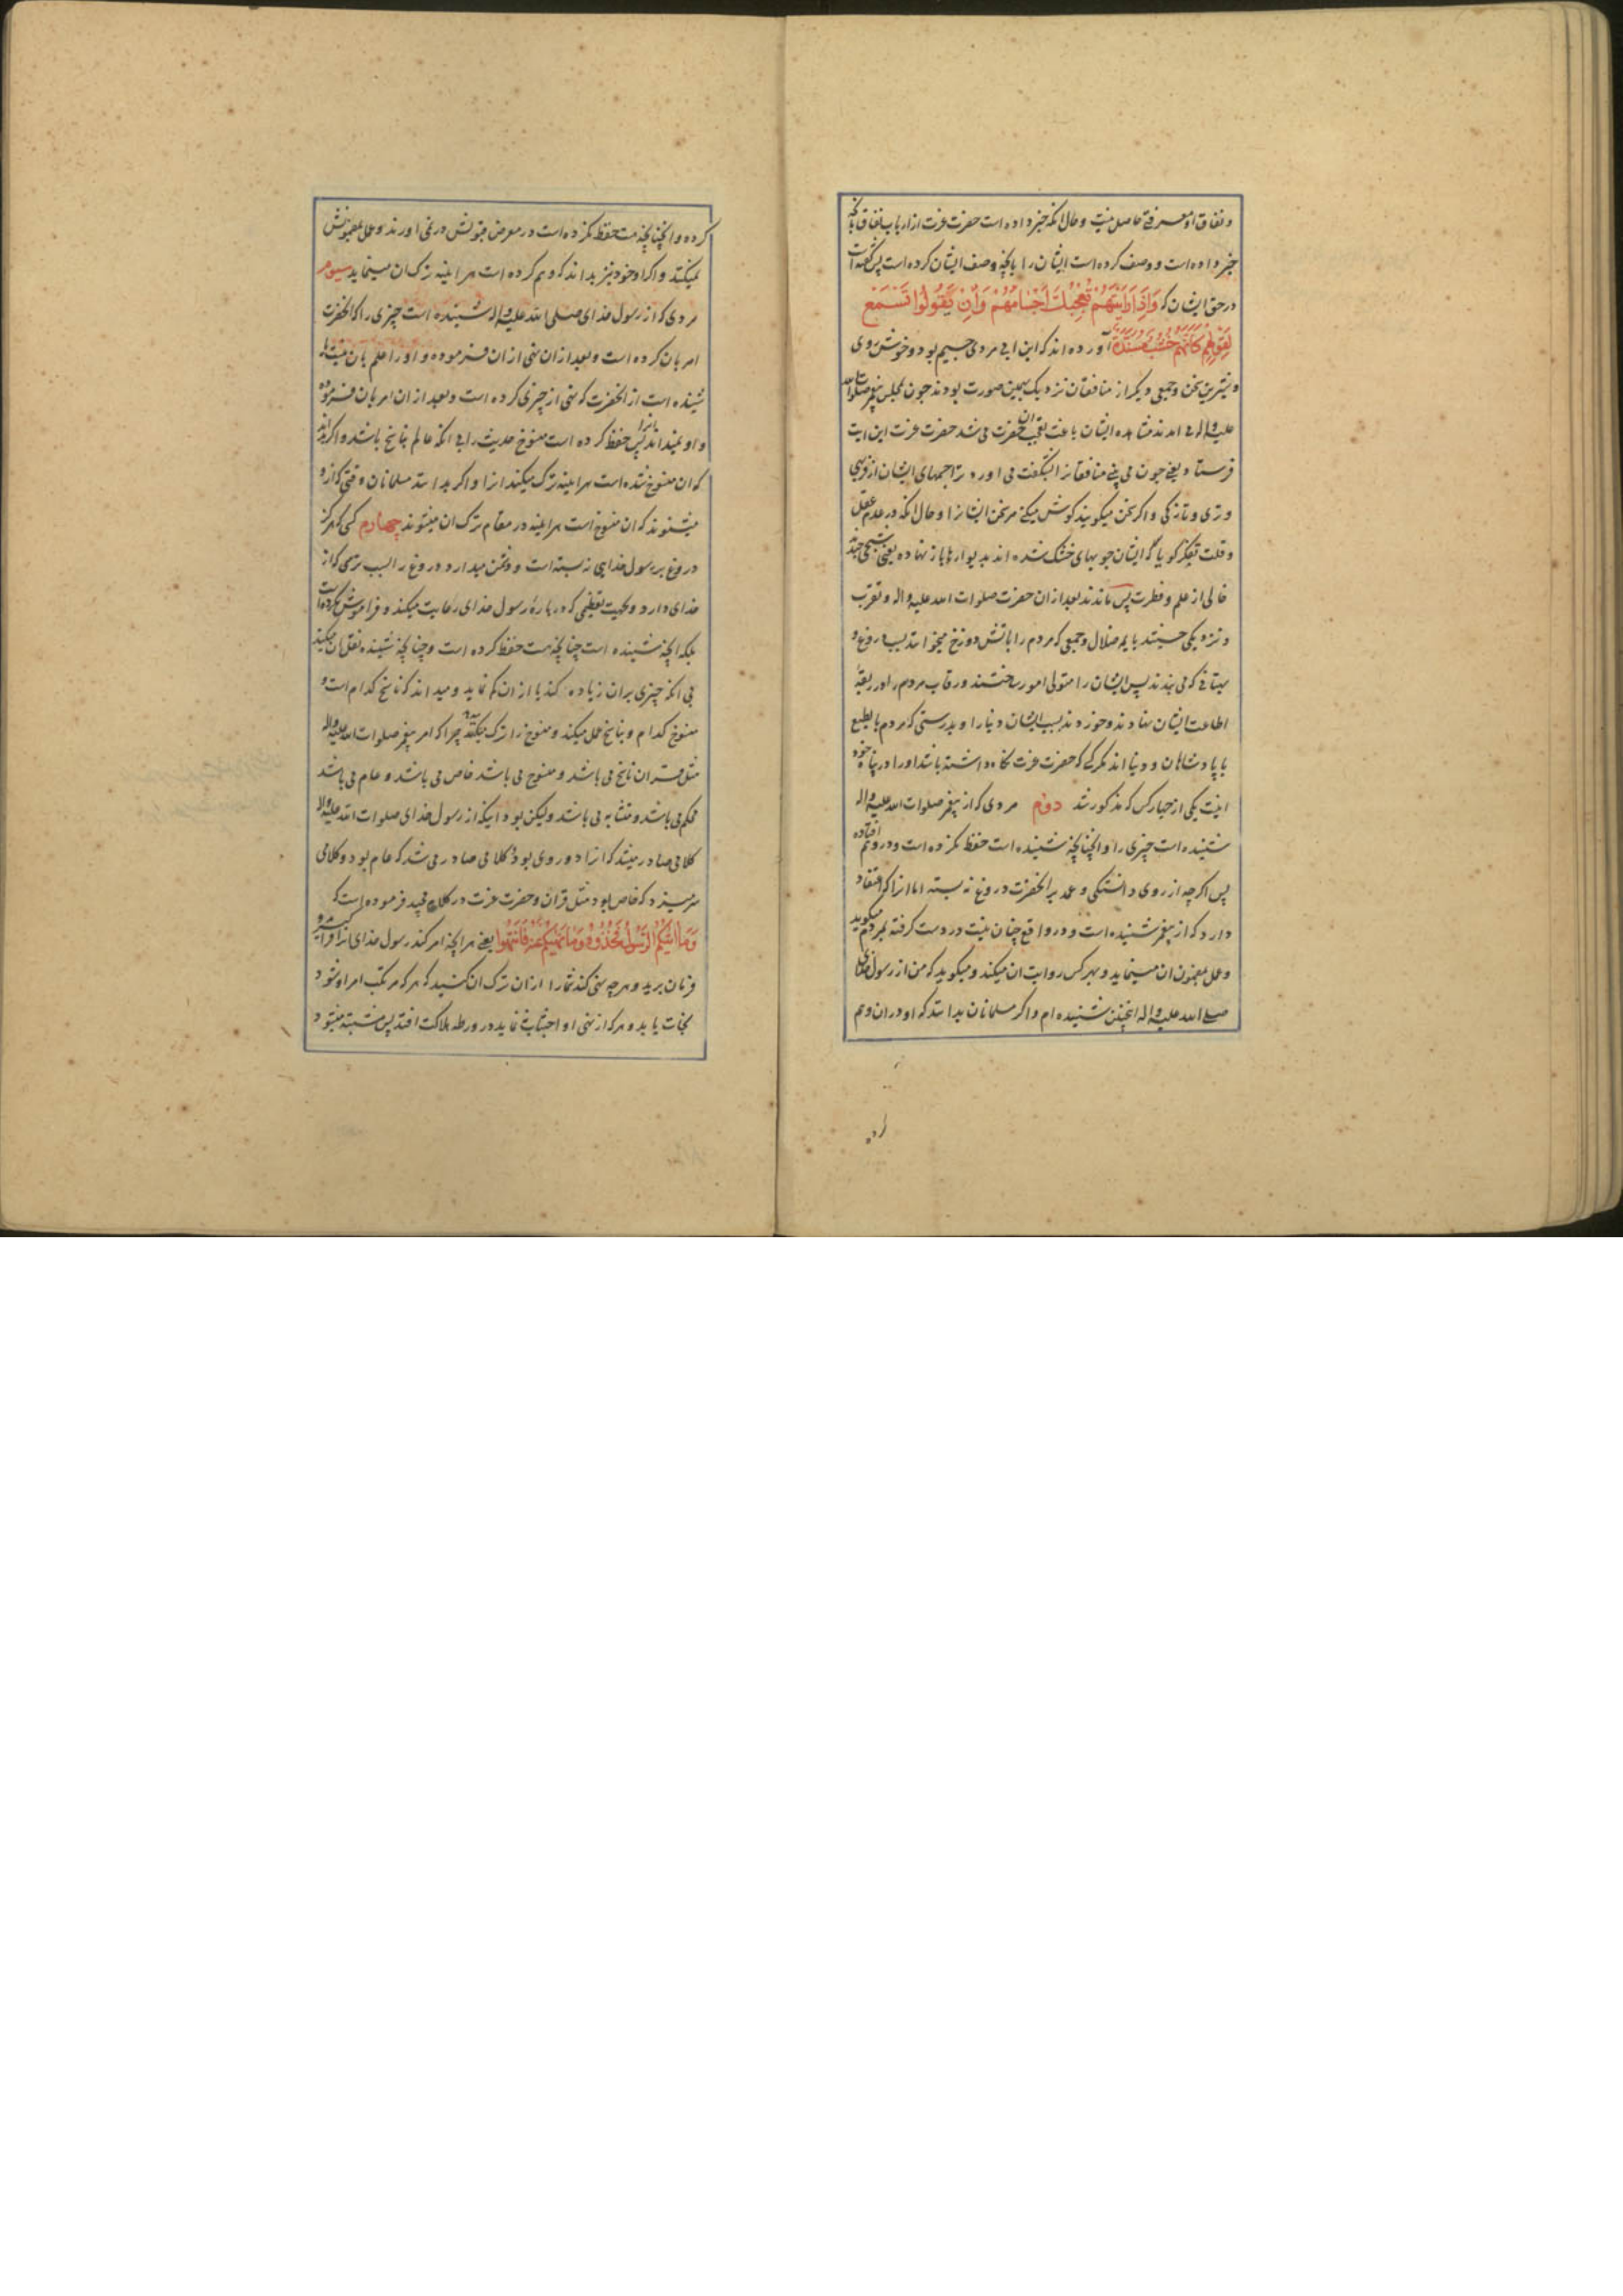 و نفاق او معرفتی حاصل نیست و حال انکه خبر داده است حضرت عزت از ارباب نفاق بانچه
خبر داده است و وصف کرده است ایشان را بانچه وصف ایشان کرده است پس گفته است
در حق ایشان که وَاِذَا رَاَیْتَهُمْ تُعْجِبُكَ اَجْسَامُهُمْ وَاِنْ یَقُولُوا تَسْمَعْ
لِقَوْلِهِمْ كَاَنَّهُمْ خُشُبٌ مُسَنَّدَةٌ آورده اند که ابن ابی مردی جسیم بود و خوش روی
و شیرین سخن و جمعی دیگر از منافقان نزدیک بهمین صورت بودند چون بمجلس پیغمبر صلوات الله
علیه و اله می امدند مشاهده ایشان باعث تعجب ان حضرت می شد حضرت عزت این ایت
فرستاد یعنی چون می بینی منافقانرا بشگفت می اورد ترا جسمهای ایشان از فربهی
و تری و تازگی و اگر سخن میگویند گوش میکنی مر سخن ایشانرا و حال انکه در عدم عقل
و قلت تفکر گویا که ایشان چوبهای خشک شده اند بدیوارها باز نهاده یعنی شبحی چند
خالی از علم و فطرت پس ماندند بعد از ان حضرت صلوات الله علیه و اله و تقرب
و نزدیکی جستند بایمه ضلال و جمعی که مردم را باتش دوزخ میخواندند بسبب دروغ و
بهتانی که می بندند پس ایشان را متولی امور ساختند و رقاب مردم را در ربقهٔ
اطاعت ایشان نهادند و خوردند بسبب ایشان دنیا را و بدرستی که مردم بالطبع
با پادشاهان و دنیا اند مگر کسی که حضرت عزت نگاه داشته باشد او را در پناه خود
اینست یکی از چهار کس که مذکور شد دوم مردی که از پیغمبر صلوات الله علیه و اله
شنیده است چیزی را و انچنانچه شنیده است حفظ نکرده است و در وهم افتاده
پس اگرچه از روی دانستگی و عمد بر انحضرت دروغ نه بسته اما انرا که اعتقاد
دارد که از پیغمبر شنیده است و در واقع چنان نیست در دست گرفته بمردم میگوید
و عمل بمضمون ان مینماید و بهر کس روایت ان میکند و میگوید که من از رسول خدای
صلی الله علیه و اله اینچنین شنیده ام و اگر مسلمانان بدانند که او در ان وهم
کرده و انچنانچه هست حفظ نکرده است در معرض قبولش در نمی اورند و عمل بمضمونش
نمیکنند و اگر او خود نیز بداند که وهم کرده است هر اینه ترک ان مینماید سیوم
مردی که از رسول خدای صلی الله علیه و اله شنیده است چیزی را که انحضرت
امر بان کرده است و بعد از ان نهی از ان فرموده و او را علم بان نیست یا
شنیده است از انحضرت که نهی از چیزی کرده است و بعد از ان امر بان فرموده
و او نمیداند انرا پس حفظ کرده است منسوخ حدیث را بی انکه عالم بناسخ باشد و اگر بداند
که ان منسوخ شده است هر اینه ترک میکند انرا و اگر بدانند مسلمانان وقتی که از و
میشنوند که ان منسوخ است هر اینه در مقام ترک ان میشوند چهارم کسی که هرگز
دروغ بر رسول خدایی نه بسته است و دشمن میدارد دروغ را بسبب ترسی که از
خدای دارد و بجهت تعظیمی که در بارهٔ رسول خدای رعایت میکند و فراموش نکرده است
بلکه انچه شنیده است چنانچه هست حفظ کرده است و چنانچه شنیده نقل ان میکند
بی انکه چیزی بر ان زیاده کند یا از ان کم نماید و میداند که ناسخ کدام است و
منسوخ کدام و بناسخ عمل میکند و منسوخ را ترک میکند چرا که امر پیغمبر صلوات الله علیه و اله
مثل قران ناسخ می باشد و منسوخ می باشد خاص می باشد و عام می باشد
محکم می باشد و متشابه می باشد ولیکن بود اینکه از رسول خدای صلوات الله علیه و اله
کلامی صادر میشد که انرا دو روی بود کلامی صادر می شد که عام بود و کلامی
سر میزد که خاص بود مثل قران و حضرت عزت در کلام مجید فرموده است که
وَمَا اٰتٰیكُمُ الرَّسُولُ فَخُذُوهُ وَمَا نَهٰیكُمْ عَنْهُ فَانْتَهُوا یعنی هر انچه امر کند رسول خدای انرا فرا گیرید و
فرمان برید و هرچه نهی کند شما را از ان ترک ان کنید که هر که مرتکب امر او شود
نجات یابد و هر که از نهی او اجتناب نماید در ورطه هلاکت افتد پس مشتبه میشود
کرده